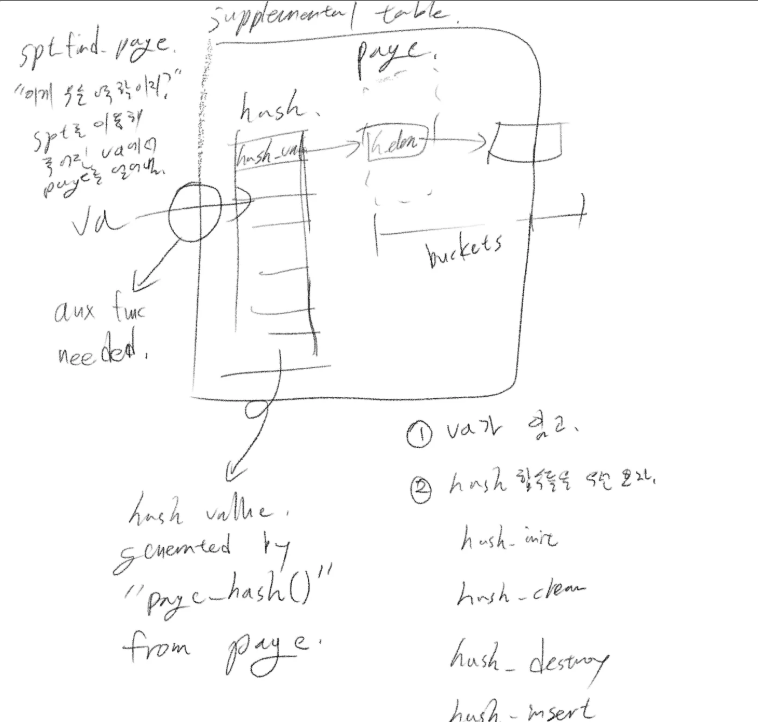 supplemental table.
spt_find_page.
"이게 무슨 역할이지?"
spt를 이용해
주어진 va에서
page를 얻어냄.
va
aux func
needed.
hash.
hash_val
page.
h_elem
buckets
hash value.
generated by
"page_hash()"
from page.
① va가 있고.
② hash 함수들을 우선 보자.
hash_init
hash_clear
hash_destroy
hash_insert